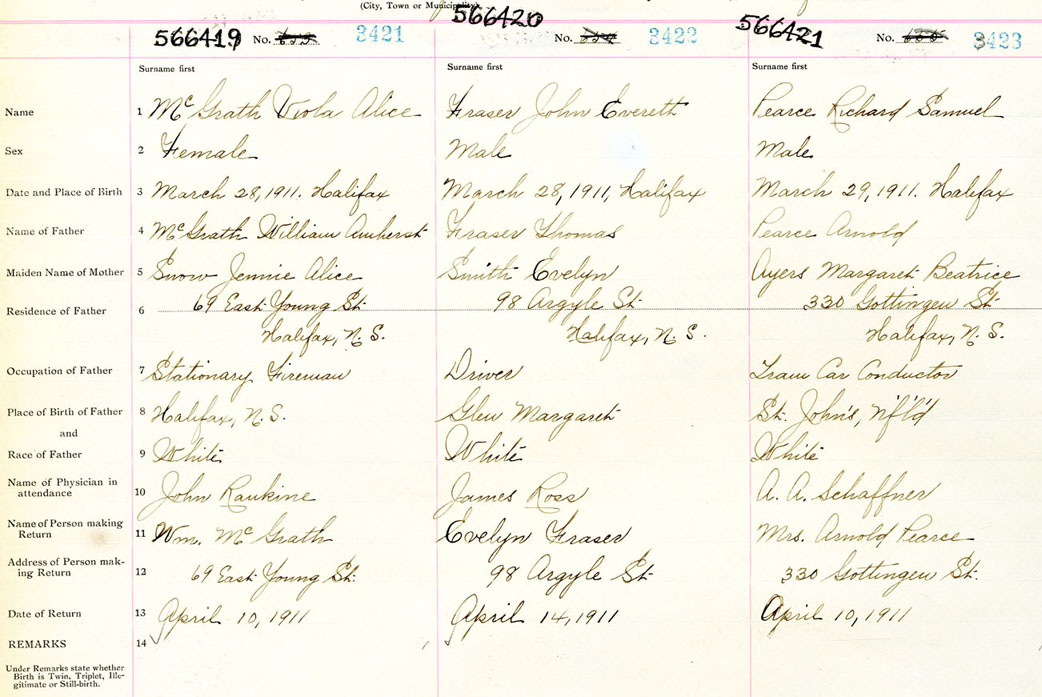 (City, Town or Municipality)
566419 No. 3421 566420 No. 3422 566421 No. 3423
Surname first Surname first Surname first
Name 1 McGrath Viola Alice Fraser John Everett Pearce Richard Samuel
Sex 2 Female Male Male
Date and Place of Birth 3 March 28, 1911. Halifax March 28, 1911, Halifax March 29, 1911. Halifax
Name of Father 4 McGrath William Amherst Fraser Thomas Pearce Arnold
Maiden Name of Mother 5 Snow Jennie Alice Smith Evelyn Ayers Margaret Beatrice
Residence of Father 6 69 East Young St. 98 Argyle St. 330 Gottingen St.
Halifax, N.S. Halifax, N.S. Halifax, N.S.
Occupation of Father 7 Stationary Fireman Driver Tram Car Conductor
Place of Birth of Father 8 Halifax, N.S. Glen Margaret St. John's, N'f'l'd
and
Race of Father 9 White White White
Name of Physician in
attendance 10 John Rankine James Ross A. A. Schaffner
Name of Person making
Return 11 Wm. McGrath Evelyn Fraser Mrs. Arnold Pearce
Address of Person mak-
ing Return 12 69 East Young St. 98 Argyle St. 330 Gottingen St.
Date of Return 13 April 10, 1911 April 14, 1911 April 10, 1911
REMARKS 14
Under Remarks state whether
Birth is Twin, Triplet, Ille-
gitimate or Still-birth.